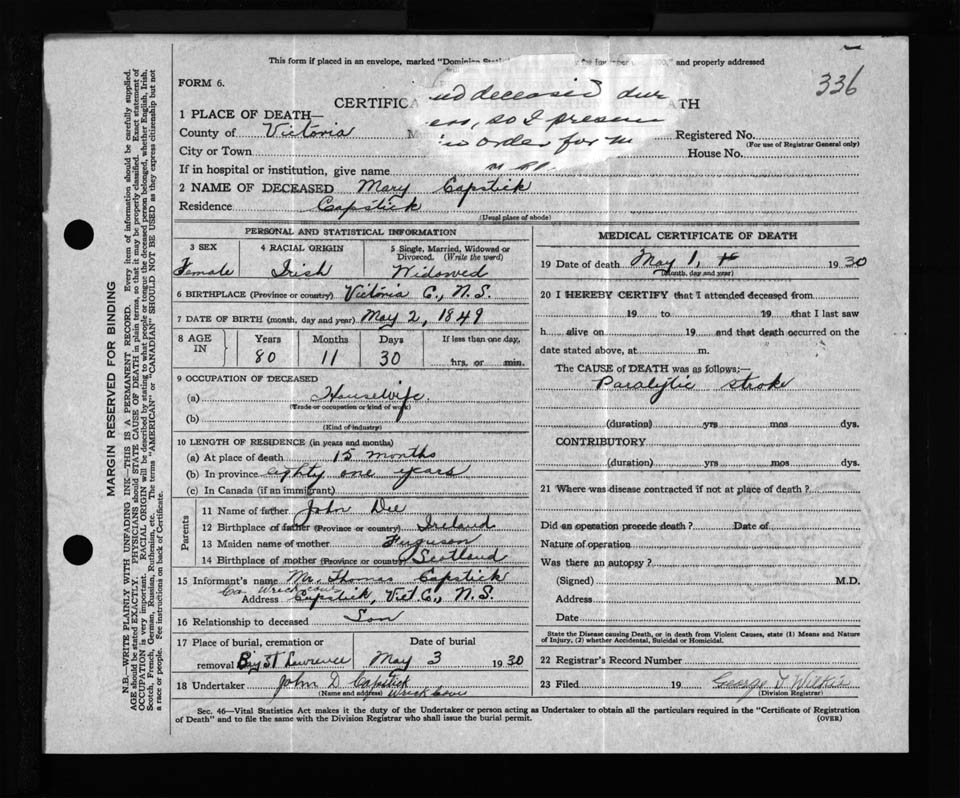 This form if placed in an envelope, marked "Dominion and properly addressed
336
FORM 6.
deceased dur
CERTIFICA ATH
so I
order for m
1 PLACE OF DEATH—
County of Victoria
Registered No.
(For use of Registrar General only)
City or Town
House No.
If in hospital or institution, give name
2 NAME OF DECEASED Mary Capstick
Residence Capstick
(Usual place of abode)
PERSONAL AND STATISTICAL INFORMATION
3 SEX 4 RACIAL ORIGIN 5 Single, Married, Widowed or Divorced. (Write the word)
Female Irish Widowed
6 BIRTHPLACE (Province or country) Victoria C., N.S.
7 DATE OF BIRTH (month, day and year) May 2, 1849
8 AGE IN Years Months Days If less than one day,
80 11 30 hrs. or min.
9 OCCUPATION OF DECEASED
(a) Housewife
(Trade or occupation or kind of work)
(b)
(Kind of industry)
10 LENGTH OF RESIDENCE (in years and months)
(a) At place of death 15 months
(b) In province eighty one years
(c) In Canada (if an immigrant)
Parents
11 Name of father John Dee
12 Birthplace of father (Province or country) Ireland
13 Maiden name of mother Ferguson
14 Birthplace of mother (Province or country) Scotland
15 Informant's name Mr. Thomas Capstick
Address Capstick, Vict C., N.S.
16 Relationship to deceased Son
17 Place of burial, cremation or Date of burial
removal Bay St Lawrence May 3 1930
18 Undertaker John D Capstick
(Name and address) Wreck Cove
MEDICAL CERTIFICATE OF DEATH
19 Date of death May 1, 1930
(Month, day and year)
20 I HEREBY CERTIFY that I attended deceased from
19 to 19 that I last saw
h alive on 19 and that death occurred on
date stated above, at m.
The CAUSE of DEATH was as follows:—
Paralytic stroke
(duration) yrs mos dys.
CONTRIBUTORY
(duration) yrs mos dys.
21 Where was disease contracted if not at place of death?
Did an operation precede death? Date of
Nature of operation
Was there an autopsy?
(Signed) M.D.
Address
Date
State the Disease causing Death, or in death from Violent Causes, state (1) Means and Nature of Injury, (2) whether Accidental, Suicidal or Homicidal.
22 Registrar's Record Number
23 Filed 19 George T. Wilkie
(Division Registrar)
Sec. 46—Vital Statistics Act makes it the duty of the Undertaker or person acting as Undertaker to obtain all the particulars required in the "Certificate of Registration
of Death" and to file the same with the Division Registrar who shall issue the burial permit. (OVER)
MARGIN RESERVED FOR BINDING
N.B.—WRITE PLAINLY WITH UNFADING INK—THIS IS A PERMANENT RECORD. Every item of information should be carefully supplied.
AGE should be stated EXACTLY. PHYSICIANS should STATE CAUSE OF DEATH in plain terms, so that it may be properly classified. Exact statement of
OCCUPATION is very important. RACIAL ORIGIN will be described by stating to what people or tongue the deceased person belonged, whether English, Irish,
Scotch, French, German, Russian, Ruthenian, etc. The terms "AMERICAN" or "CANADIAN" SHOULD NOT BE USED as they express citizenship but not
a race or people. See instructions on back of Certificate.